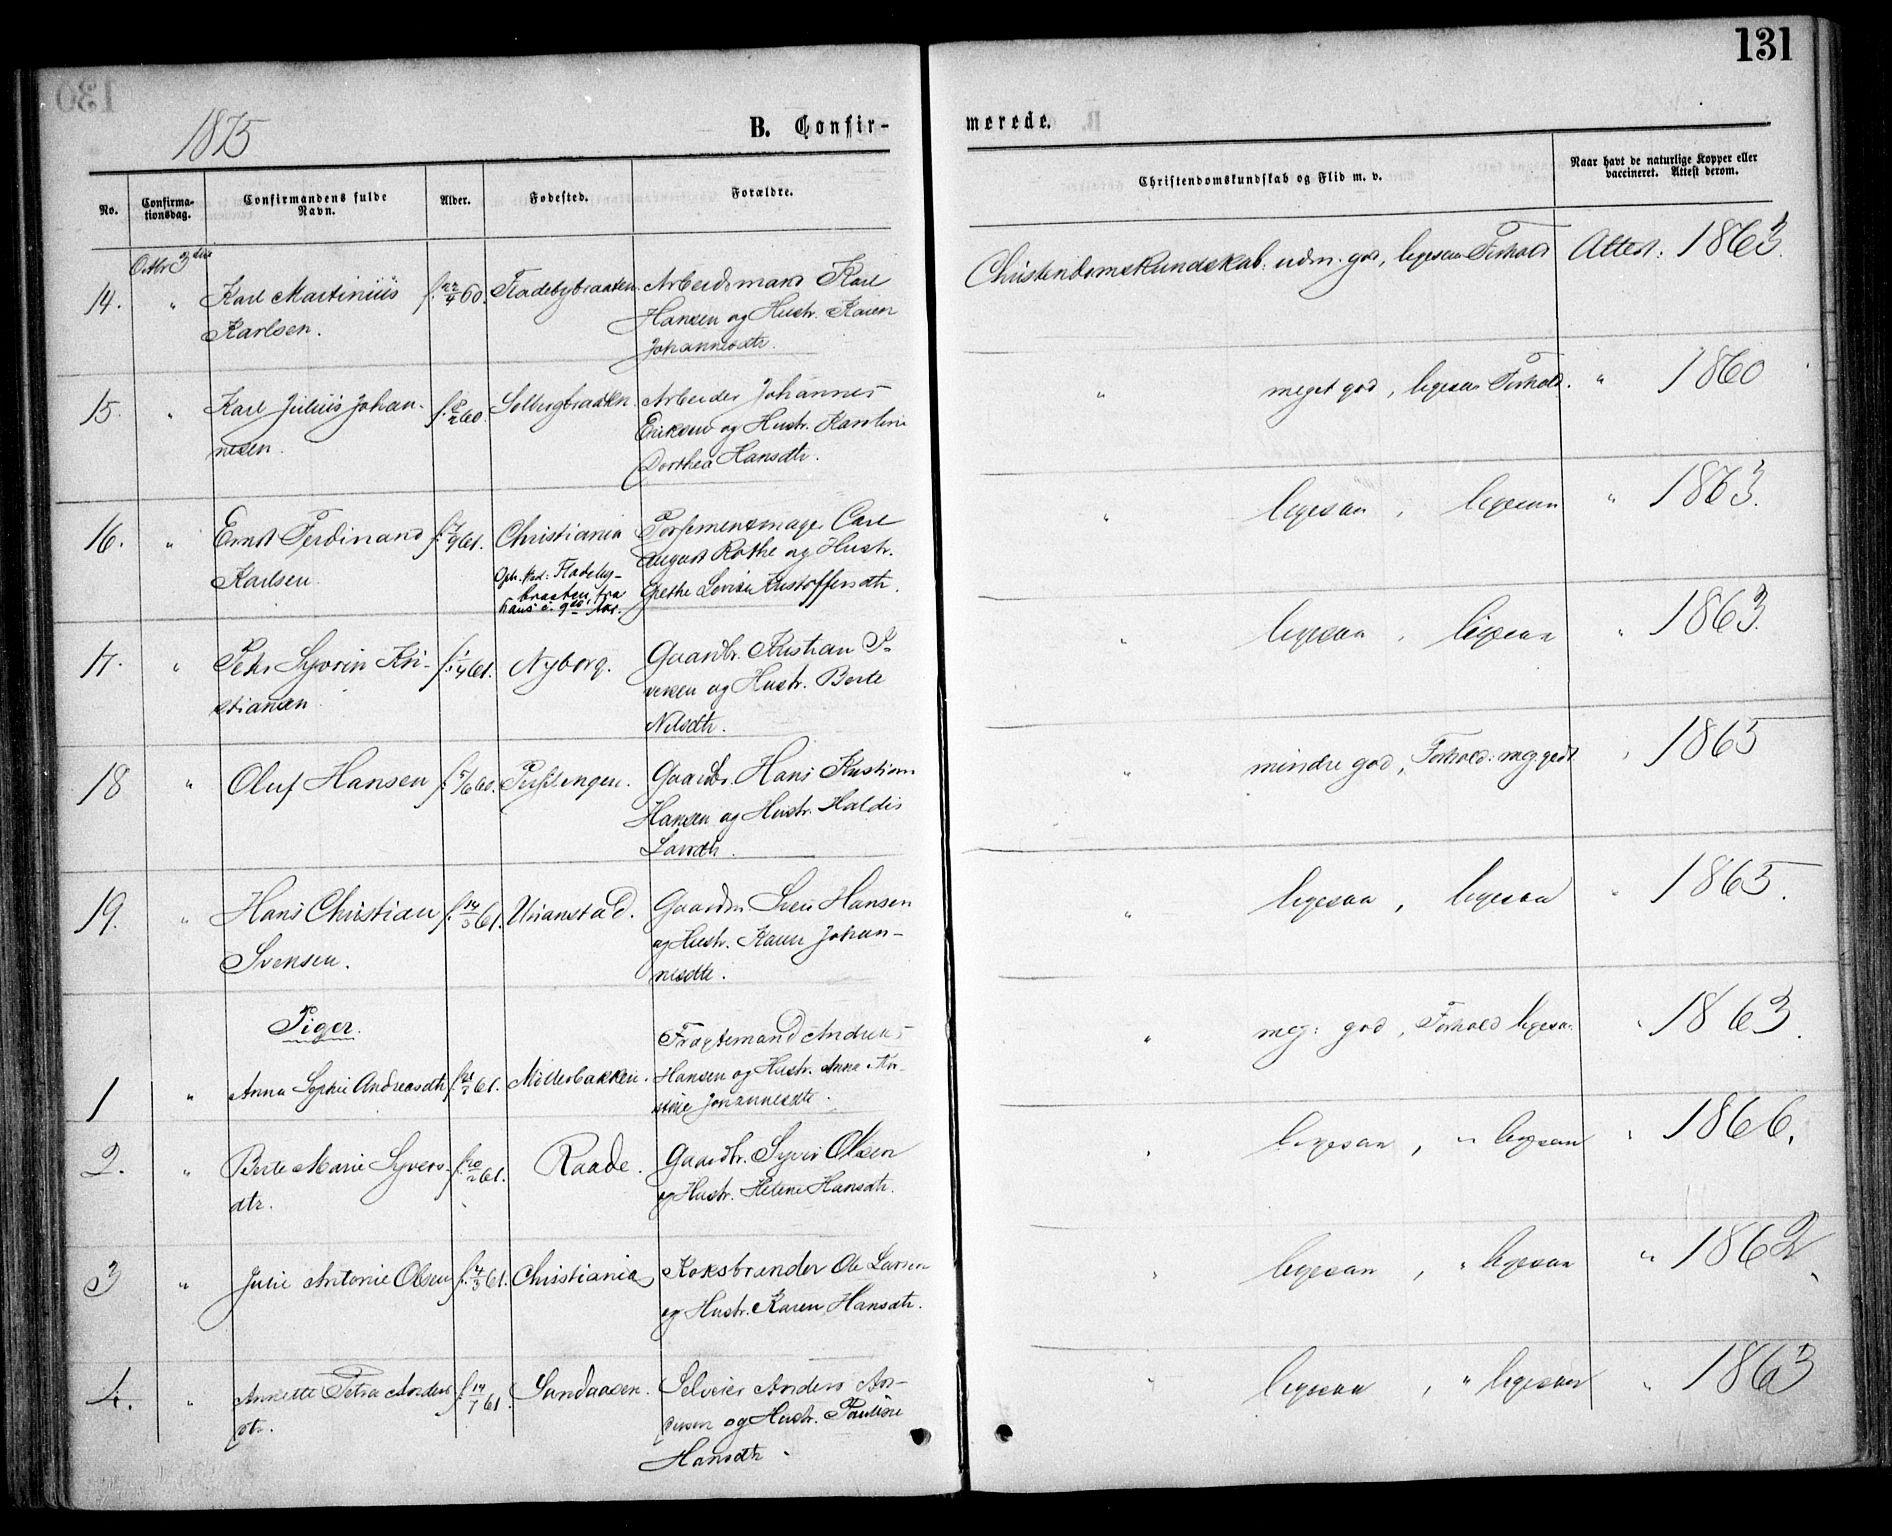 131
1875
B. Confir-
merede.
No.
Confirma-
tionsdag.
Confirmandens fulde
Navn.
Alder.
Fødested.
Forældre.
Christendomskundskab og Flid m. v.
Naar havt de naturlige Kopper eller
vaccineret. Attest derom.
Octbr 3die
14. " Karl Martinius f. 22/4 60. Fladebybraaten. Arbeidsmand Karl
Karlsen. Hansen og Hustr. Karen
Johannesdtr.
Christendomskundskab: udm. god, ligesaa Forhold Attest: 1863.
15. " Karl Julius Johan- f. 60. Solbergbraaten. Arbeider Johannes
nesen. Eriksen og Hustr. Karoline
Dorthea Hansdtr.
" meget god, ligesaa Forhold. " 1860
16. " Ernst Ferdinand f. 7/9 61. Christiania Carl
Karlsen. August Rothe og Hustr.
Oph.sted: Fladeby-
braaten, fra
hans 9de Aar.
Grethe Lovise Kristoffersdtr.
" ligesaa, ligesaa " 1863.
17. " Peter Syverin Kri- f. 1/4 61. Nyborg. Gaardbr. Kristian I-
stiansen. versen og Hustr. Berte
Nilsdtr.
" ligesaa, ligesaa " 1863.
18 " Oluf Hansen f. 5/6 60. Gaardbr. Hans Kristian
Hansen og Hustr. Haldis
Larsdtr.
" mindre god, Forhold: meg. godt " 1865
19. " Hans Christian f. 14/3 61. Unanstad. Gaardbr. Sven Hansen
Svensen. og Hustr. Karen Johan-
nesdtr.
" ligesaa, ligesaa " 1865.
Piger.
1 " Anna Sophie Andreasdtr f. 61. Möllerbakken. Fragtemand Andreas
Hansen og Hustr. Anna
Johannesdtr.
" meg: god, Forhold ligesaa. " 1863.
2. " Berte Marie Syvers- f. 20/2 61. Raade. Gaardbr. Syver Olsen
dtr. og Hustr. Helene Hansdtr.
" ligesaa, " ligesaa " 1866.
3 " Julie Antonie Olsen f. 4/3 61. Christiania Koksbrænder Ole Larsen
og Hustr. Karen Hansdtr.
" ligesaa, " ligesaa " 1862.
4. " Annette Petra Anders- f. 14/7 61. Sundaasen. Selveier Anders An-
dtr. dersen og Hustr. Pauline
Hansdtr.
" ligesaa, " ligesaa " 1863